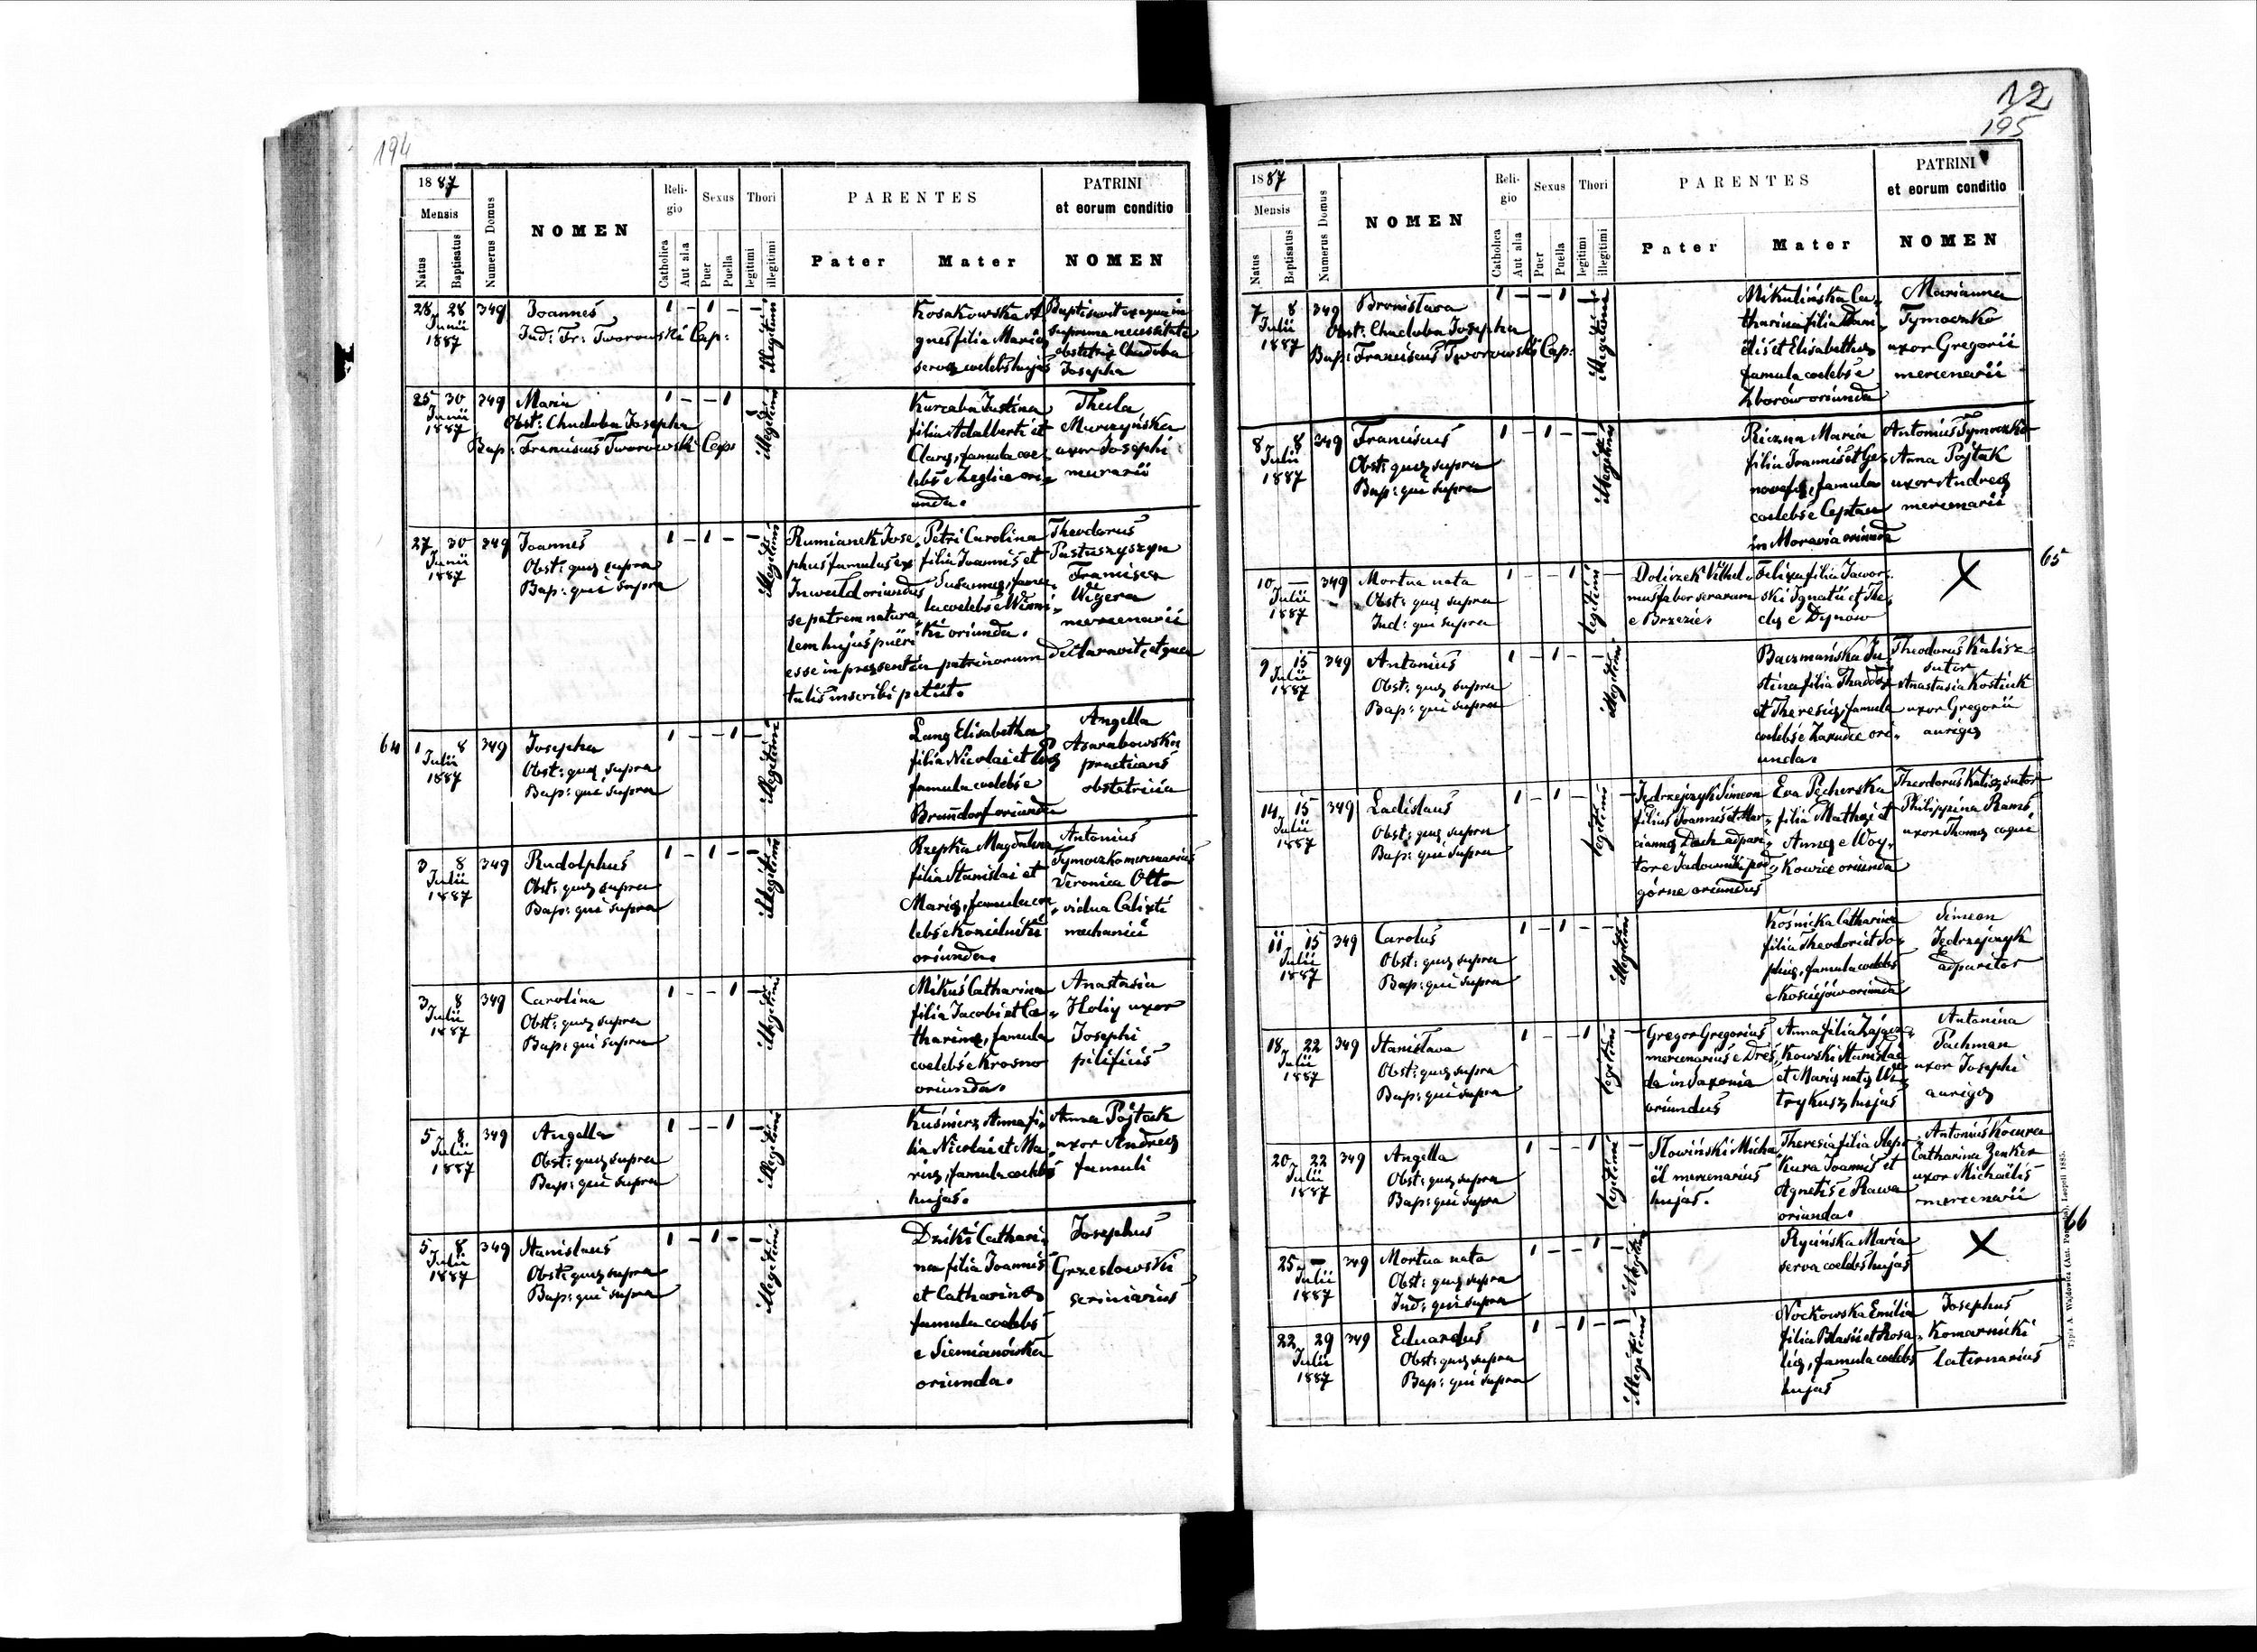 194
1887
Mensis
Natus
Baptisatus
Numerus Domus
NOMEN
Religio
Catholica
Aut alia
Sexus
Puer
Puella
Thori
legitimi
illegitimi
PARENTES
Pater
Mater
PATRINI
et eorum conditio
NOMEN
28 28 349 Joannes 1 – 1 – –
Junii
1887
Ind: Fr: Tworowski Cap:
illegitimi
Kosakowska A
gnes filia Mariæ
serva coelebs hujas
Baptisavit ex aqua in
suprema necessitate
obstetrix Chudoba
Josepha
25 30 349 Maria 1 – – 1
Junii
1887
Obst: Chudoba Josepha
Bap: Franciscus Tworowski Cap:
illegitimi
Kurzaba Justina
filia Adalberti et
Claræ, famula coe-
lebs e Zeglce ori-
unda.
Thecla
Murzyńska
uxor Josephi
murarii
27 30 349 Joannes 1 – 1 – –
Junii
1887
Obst: quæ supra
Bap: qui supra
illegitimi
Rumianek Jose-
phus famulus ex
Inwald oriundus
se patrem natura-
lem hujus pueri
esse in præsentia patrinorum declaravit, et qua
talis inscribi petiit.
Petri Carolina
filia Joannis et
Susannæ, famu-
la coelebs e Winni-
ki oriunda.
Theodorus
Pastuszyszyn
Francisca
Wigera
mercenarii
64
1 8 349 Josepha 1 – – 1 –
Julii
1887
Obst: quæ supra
Bap: qui supra
illegitimi
Lang Elisabetha
filia Nicolai et Evæ
famula coelebs e
Brundorf oriunda
Angella
Asarabowska
practicans
obstetricia
3 8 349 Rudolphus 1 – 1 – –
Julii
1887
Obst: quæ supra
Bap: qui supra
illegitimi
Rzepka Magdalena
filia Stanislai et
Mariæ, famula coe-
lebs e Konielniki
oriunda.
Antonius
Tymoczko mercenarius
Veronica Otto
vidua Calixti
mechanici
3 8 349 Carolina 1 – – 1 –
Julii
1887
Obst: quæ supra
Bap: qui supra
illegitimi
Mikuś Catharina
filia Jacobi et Ca-
tharinæ, famula
coelebs e Krosno
oriunda.
Anastasia
Holiy uxor
Josephi
pilificis
5 8 349 Angella 1 – – 1 –
Julii
1887
Obst: quæ supra
Bap: qui supra
illegitimi
Kuśnierz Anna fi-
lia Nicolai et Ma-
riæ, famula coelebs
hujas.
Anna Pojtak
uxor Andreæ
famuli
5 8 349 Stanislaus 1 – 1 – –
Julii
1887
Obst: quæ supra
Bap: qui supra
illegitimi
Dziki Cathari-
na filia Joannis
et Catharinæ
famula coelebs
e Siemianówka
oriunda.
Josephus
Grzesłowski
scriniarius
12
195
1887
Mensis
Natus
Baptisatus
Numerus Domus
NOMEN
Religio
Catholica
Aut alia
Sexus
Puer
Puella
Thori
legitimi
illegitimi
PARENTES
Pater
Mater
PATRINI
et eorum conditio
NOMEN
7 8 349 Bronislava 1 – – 1 –
Julii
1887
Obst: Chudoba Josepha
Bap: Franciscus Tworowski Cap:
illegitimi
Mikulińska Ca-
tharina filia Dani-
elis et Elisabethæ
famula coelebs e
Zborów oriunda
Marianna
Tymoczko
uxor Gregorii
mercenarii
8 8 349 Franciscus 1 – 1 – –
Julii
1887
Obst: quæ supra
Bap: qui supra
illegitimi
Riczna Maria
filia Joannis et Ge-
novefæ, famula
coelebs e Ceptau
in Moravia oriunda
Antonius Tymoczko
Anna Pojtak
uxor Andreæ
mercenarii
65
10 – 349 Mortua nata 1 – – 1 –
Julii
1887
Obst: quæ supra
Ind: qui supra
legitimi
Doliszek Vilhel-
mus faber serarum
e Brzezie.
Felixa filia Jawor-
ski Ignatii et The-
clæ e Dynów
X
9 15 349 Antonius 1 – 1 – –
Julii
1887
Obst: quæ supra
Bap: qui supra
illegitimi
Baczmańska Ju-
stina filia Thaddæi
et Theresiæ, famula
coelebs e Zarudce ori-
unda.
Theodorus Kalisz
sutor
Anastasia Kostiuk
uxor Gregorii
aurigæ
14 15 349 Ladislaus 1 – 1 – –
Julii
1887
Obst: quæ supra
Bap: qui supra
legitimi
Jędrzejczyk Simeon
filius Joannis et Mar-
ciannæ Dach adpari-
tor e Jadowniki pod-
górne oriundus
Eva Pęcherska
filia Mathæi et
Annæ e Woy-
kowice oriunda
Theodorus Kalisz sutor
Philippina Rams
uxor Thomæ coqui
11 15 349 Carolus 1 – 1 – –
Julii
1887
Obst: quæ supra
Bap: qui supra
illegitimi
Kośnicka Catharina
filia Theodori et So-
phiæ, famula coelebs
e Kościejów oriunda
Simeon
Jędrzejczyk
adparitor
18 22 349 Stanislava 1 – – 1 –
Julii
1887
Obst: quæ supra
Bap: qui supra
legitimi
Gregor Gregorius
mercenarius e Dres-
da in Saxonia
oriundus
Anna filia Zającz-
kowski Stanislai
et Mariæ natæ Wi-
trykusz hujas
Antonina
Pachman
uxor Josephi
aurigæ
20 22 349 Angella 1 – – 1 –
Julii
1887
Obst: quæ supra
Bap: qui supra
legitimi
Słowiński Micha-
ël mercenarius
hujas.
Theresia filia Ślepo-
kura Joannis et
Agnetis e Rawa
oriunda.
Antonius Kocura
Catharina Zenker
uxor Michaëlis
mercenarii
66
25 – 349 Mortua nata 1 – – 1 –
Julii
1887
Obst: quæ supra
Ind: qui supra
illegitimi
Rycińska Maria
serva coelebs hujas
X
22 29 349 Eduardus 1 – 1 – –
Julii
1887
Obst: quæ supra
Bap: qui supra
illegitimi
Nockowska Emilia
filia Blasii et Rosa-
liæ, famula coelebs
hujas
Josephus
Komarnicki
laternarius